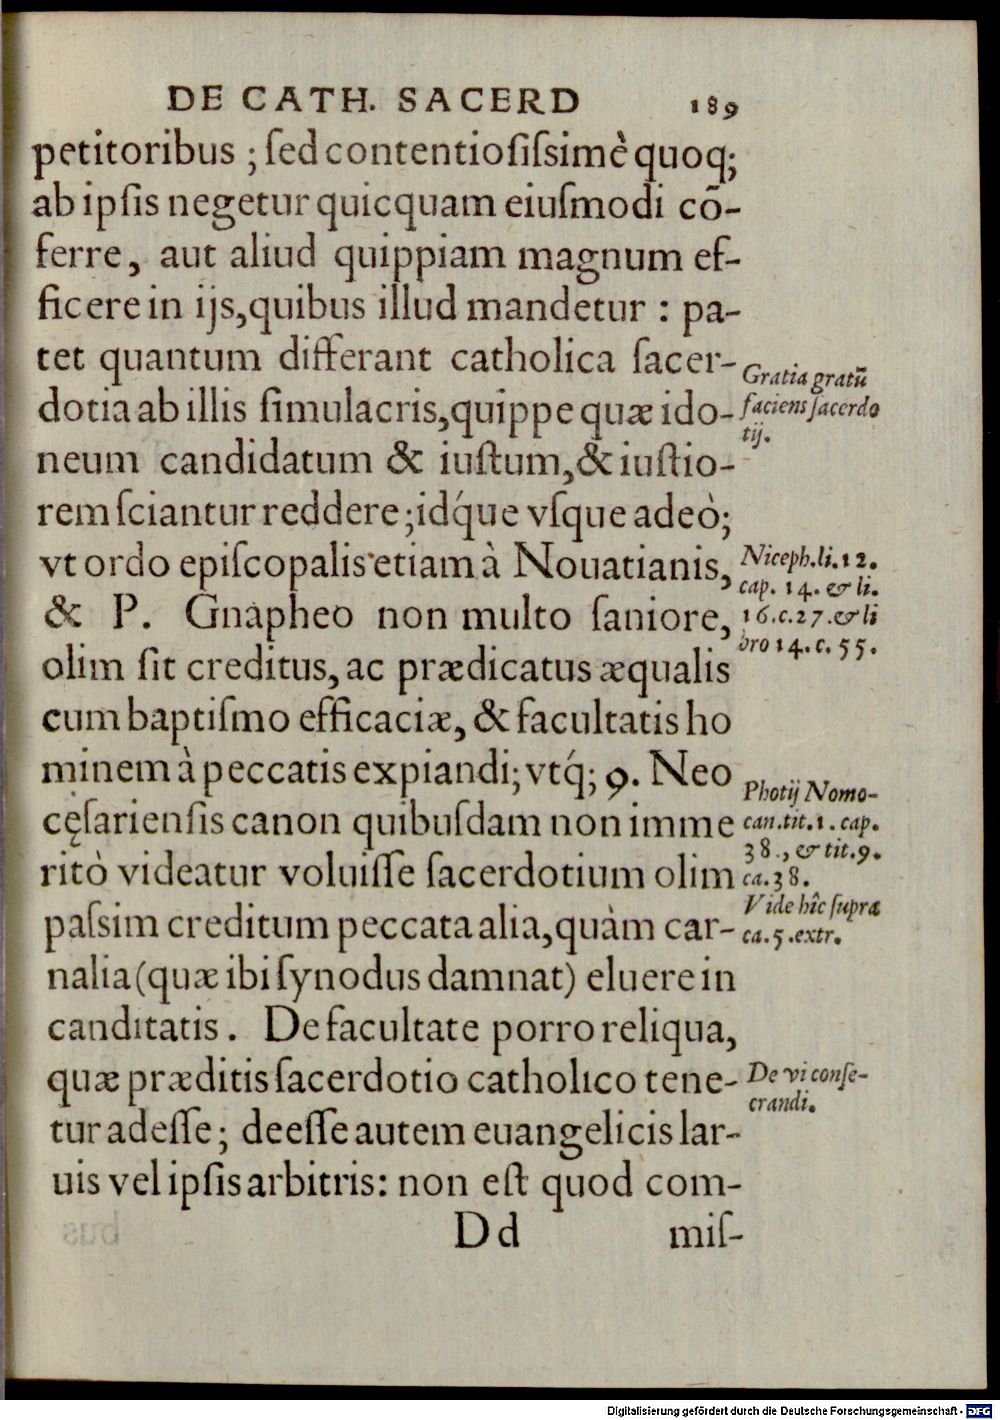 DE CATH. SACERD 189
petitoribus ; ſed contentioſiſsimè quoq;
ab ipſis negetur quicquam eiuſmodi cõ-
ferre, aut aliud quippiam magnum ef-
ficere in ijs, quibus illud mandetur : pa-
tet quantum differant catholica ſacer-
dotia ab illis ſimulacris, quippe quæ ido-
neum candidatum & iuſtum, & iuſtio-
rem ſciantur reddere; idq́ue vſque adeò;
vt ordo epiſcopalis etiam à Nouatianis,
& P. Gnapheo non multo ſaniore,
olim ſit creditus, ac prædicatus æqualis
cum baptiſmo efficaciæ, & facultatis ho
minem à peccatis expiandi; vtq́; 9. Neo
cęſarienſis canon quibuſdam non imme
ritò videatur voluiſſe ſacerdotium olim
paſsim creditum peccata alia, quàm car-
nalia (quæ ibi ſynodus damnat) eluere in
canditatis. De facultate porro reliqua,
quæ præditis ſacerdotio catholico tene-
tur adeſſe; deeſſe autem euangelicis lar-
uis vel ipſis arbitris: non eſt quod com-
Dd miſ-
Gratia gratũ
faciens ſacerdo
tij.
Niceph. li. 12.
cap. 14. & li.
16. c. 27. & li
bro 14. c. 55.
Photij Nomo-
can. tit. 1. cap.
38., & tit. 9.
ca. 38.
Vide hîc ſupra
ca. 5. extr.
De vi conſe-
crandi.
Digitalisierung gefördert durch die Deutsche Forschungsgemeinschaft - DFG